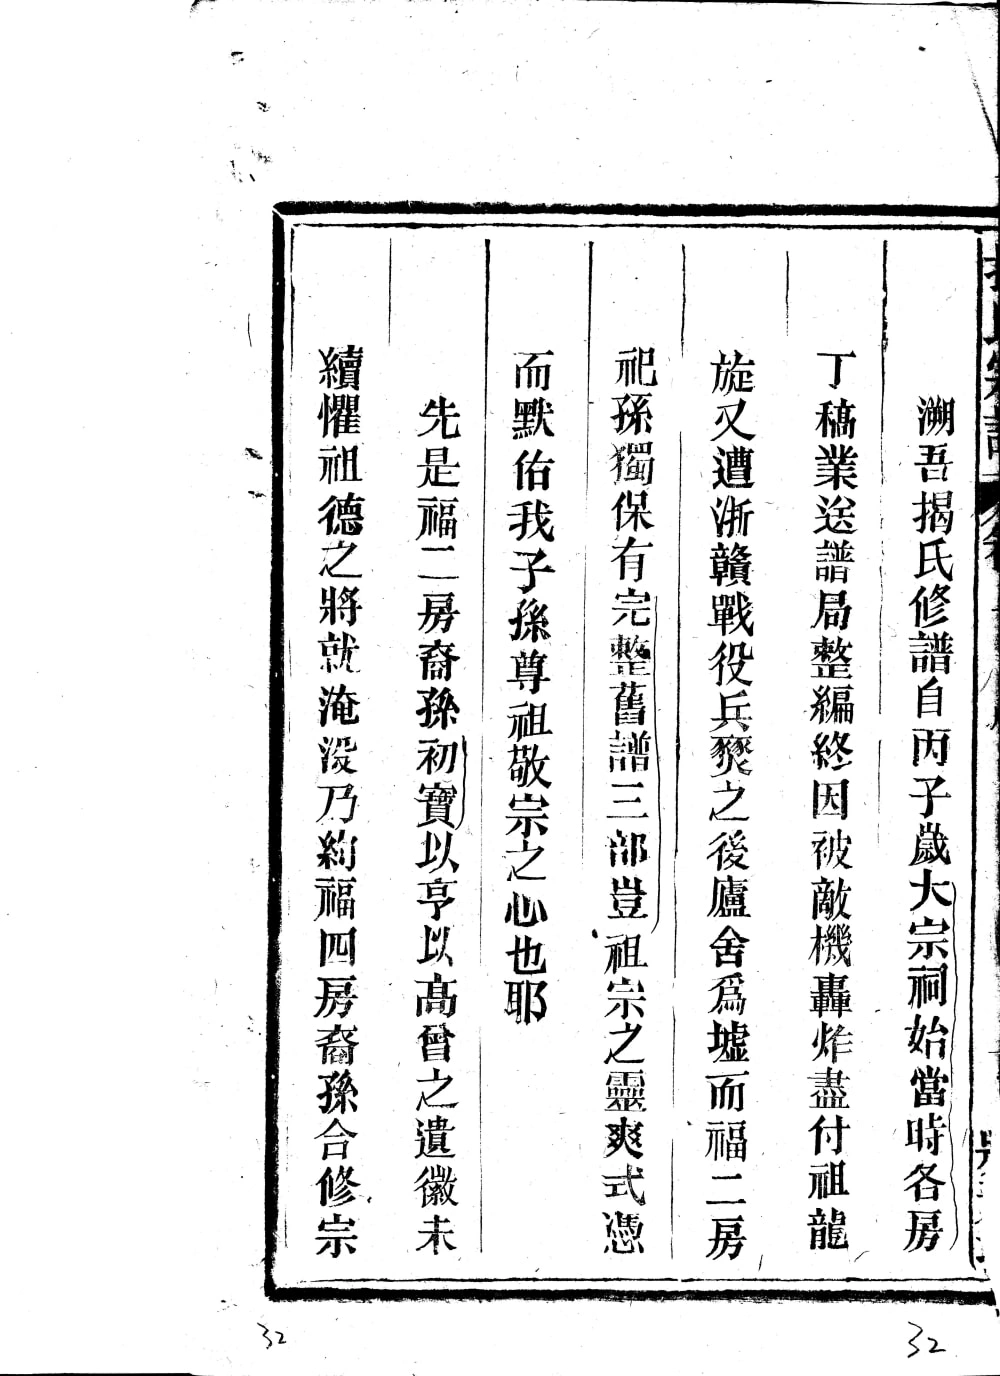 溯吾揭氏修譜自丙子歲大宗祠始當時各房
丁稿業送譜局整編終因被敵機轟炸盡付祖龍
旋又遭浙贛戰役兵燹之後廬舍爲墟而福二房
祀孫獨保有完整舊譜三部豈祖宗之靈爽式憑
而默佑我子孫尊祖敬宗之心也耶
先是福二房裔孫初寶以亨以高曾之遺徽未
續懼祖德之將就淹没乃約福四房裔孫合修宗
32
32